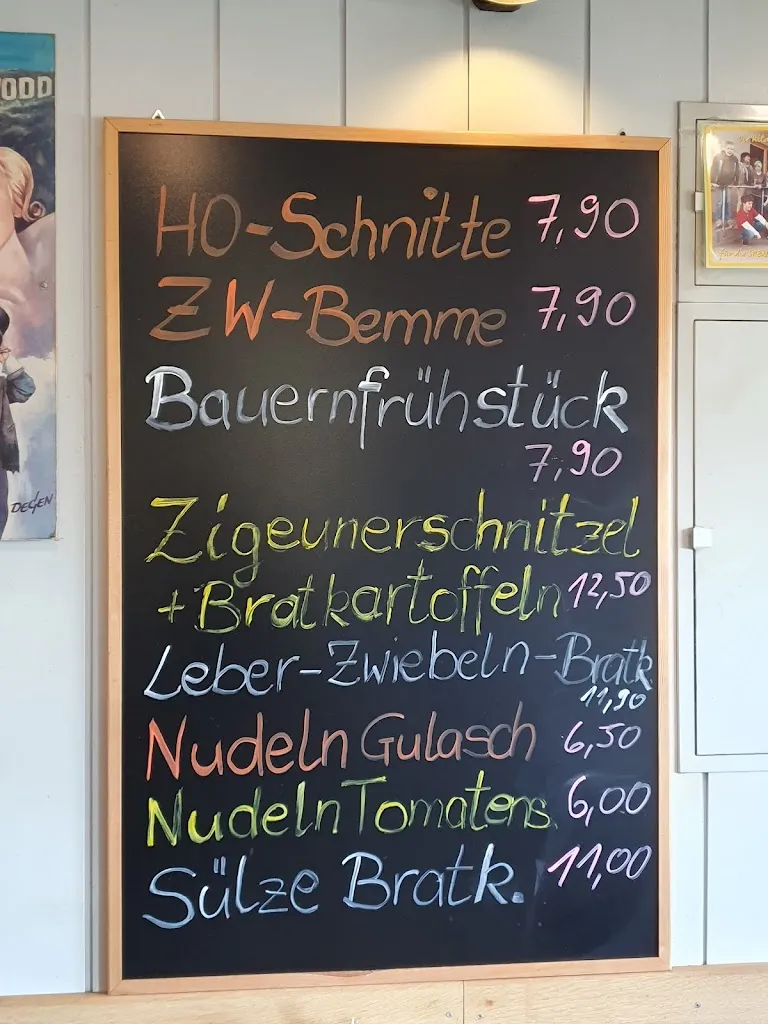 ODD
DEGEN
HO-Schnitte 7,90
ZW-Bemme 7,90
Bauernfrühstück
7,90
Zigeunerschnitzel
+ Bratkartoffeln 12,50
Leber-Zwiebeln-Bratk
11,90
Nudeln Gulasch 6,50
Nudeln Tomatens. 6,00
Sülze Bratk. 11,00